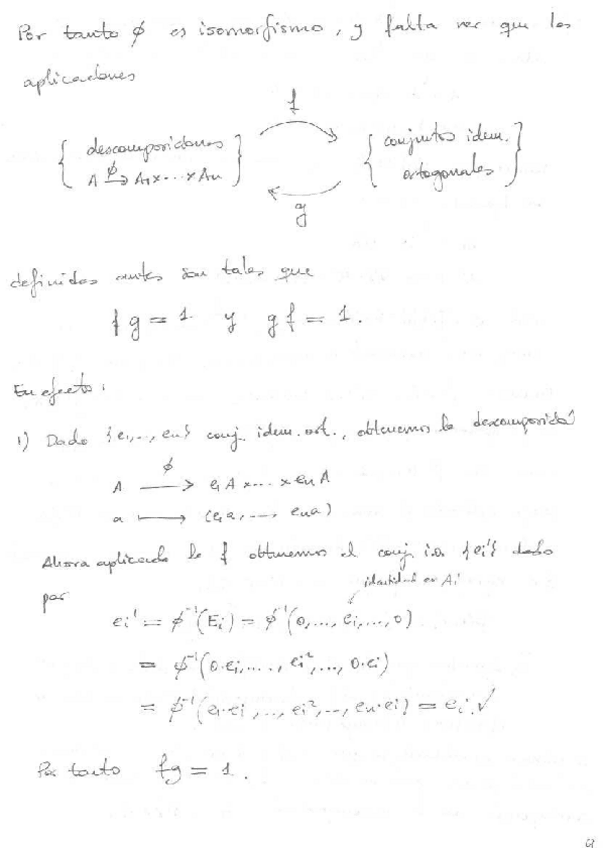 Por tanto ϕ es isomorfismo, y falta ver que las
aplicaciones
f
{ descomposiciones A →ϕ A1 x ... x An } { conjuntos idem. ortogonales }
g
definidas antes son tales que
fg = 1 y gf = 1.
En efecto:
1) Dado {e1,..., en} conj. idem. ort., obtenemos la descomposición
ϕ
A → e1A x ... x enA
a ↦ (e1a, ..., ena)
Ahora aplicando le f obtenemos el conj. i.o. {ei'} dado
por identidad en Ai
ei' = ϕ⁻¹(Ei) = ϕ⁻¹(0, ..., ei, ..., 0)
= ϕ⁻¹(0·ei, ..., ei², ..., 0·ei)
= ϕ⁻¹(e1·ei, ..., ei², ..., en·ei) = ei ✓
Por tanto fg = 1.